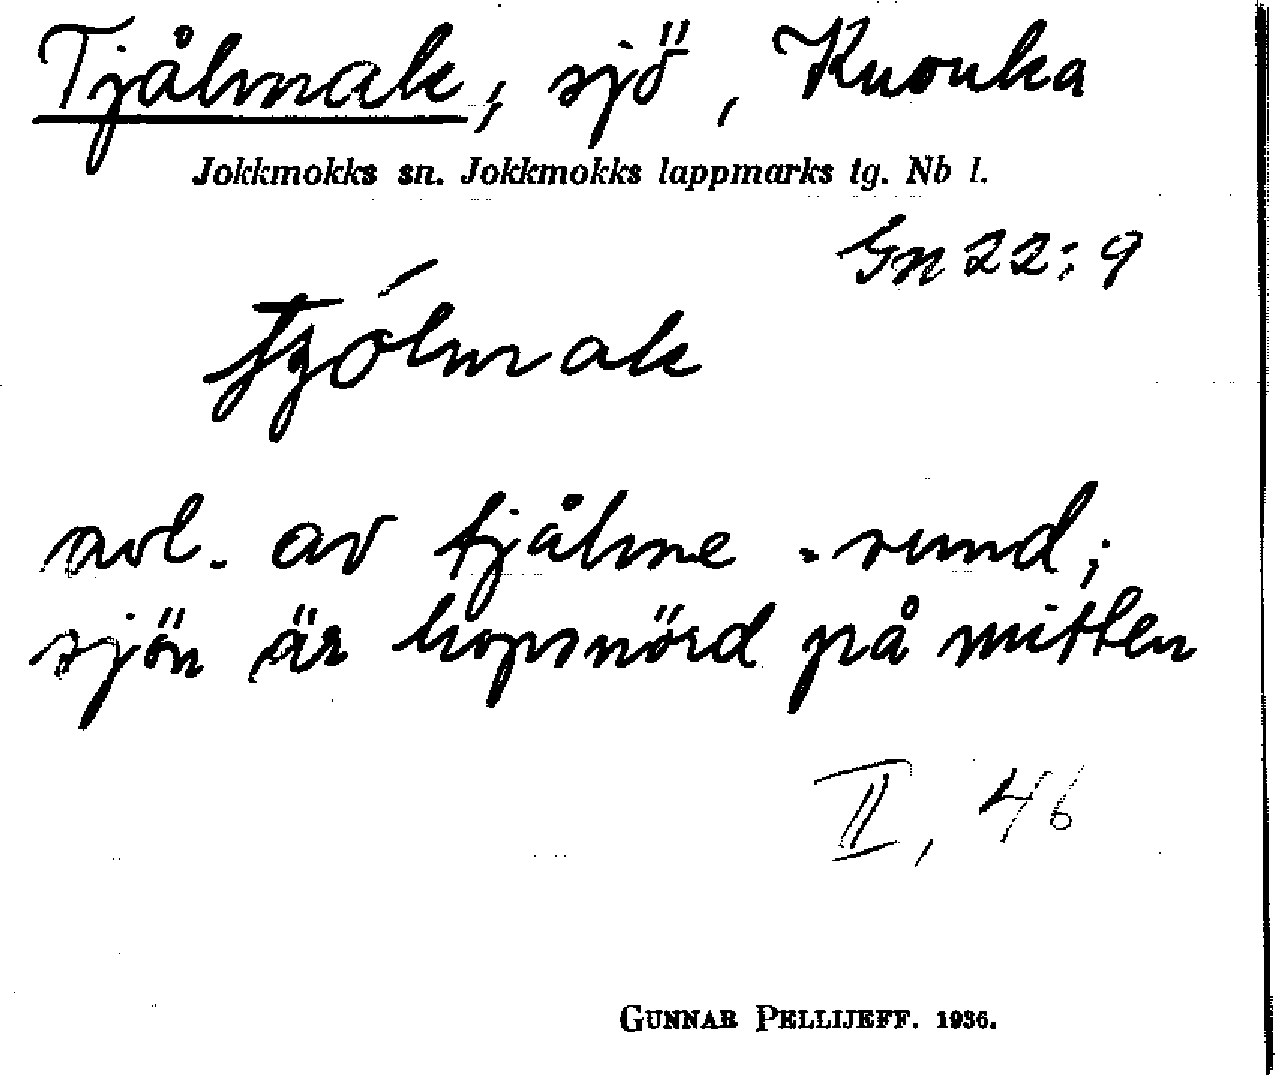 Tjålmak, sjö, Knouka
Jokkmokks sn. Jokkmokks lappmarks tg. Nb l.
Gn 22:9
tjólmak
avl. av tjålme - rund;
sjön är hopsnörd på mitten
II, 46
GUNNAR PELLIJEFF. 1936.